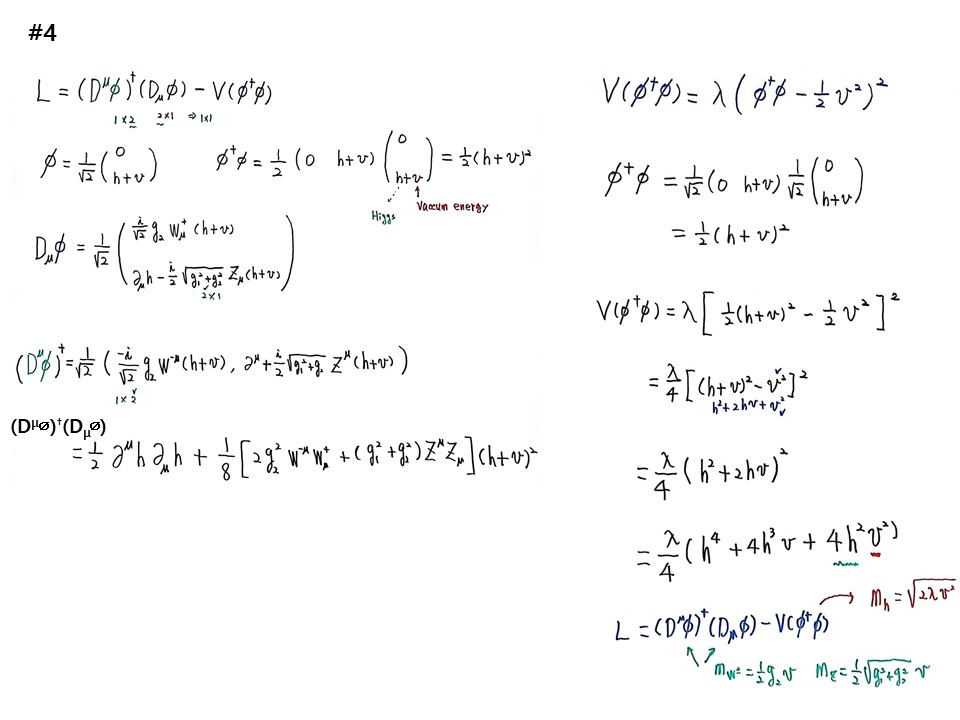 #4
L = (D^μ ϕ)^† (D_μ ϕ) − V(ϕ^†ϕ)
1×2 2×1 ⇒ 1×1
ϕ = 1/√2 (0, h+v) ϕ^†ϕ = 1/2 (0 h+v) (0, h+v) = 1/2 (h+v)²
Higgs Vacuum energy
D_μ ϕ = 1/√2 (i/√2 g₂ W_μ^+ (h+v), ∂_μ h − i/2 √(g₁²+g₂²) Z_μ (h+v))
2×1
(D^μ ϕ)^† = 1/√2 (−i/√2 g₂ W^−μ (h+v), ∂^μ + i/2 √(g₁²+g₂) Z^μ (h+v))
1×2
(D^μ ø)^† (D_μ ø)
= 1/2 ∂^μ h ∂_μ h + 1/8 [2g₂² W^−μ W_μ^+ + (g₁²+g₂²) Z^μ Z_μ] (h+v)²
V(ϕ^†ϕ) = λ (ϕ^†ϕ − 1/2 v²)²
ϕ^†ϕ = 1/√2 (0 h+v) 1/√2 (0, h+v)
= 1/2 (h+v)²
V(ϕ^†ϕ) = λ [1/2 (h+v)² − 1/2 v²]²
= λ/4 [(h+v)² − v²]²
h²+2hv+v²
= λ/4 (h²+2hv)²
= λ/4 (h⁴ + 4h³v + 4h²v²)
m_h = √(2λv²)
L = (D^μ ϕ)^† (D_μ ϕ) − V(ϕ^†ϕ)
m_W± = 1/2 g₂ v m_Z = 1/2 √(g₁²+g₂²) v